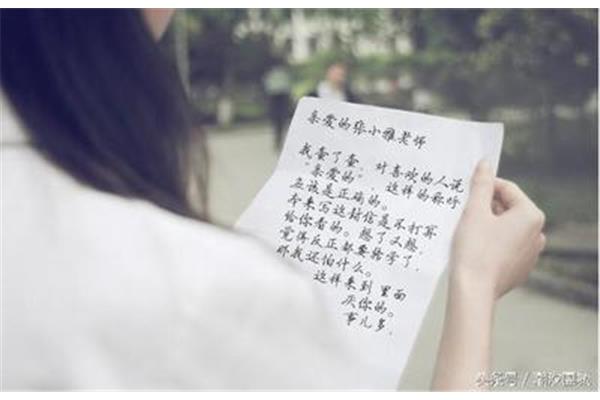 亲爱的张小雅老师
我查了查,对喜欢的人说
"亲爱的",这样的称呼
应该是正确的。
本来写这封信是不打算
给你看的。想了又想,
觉得反正都要转学了,
那我还怕什么。
这样来到 里面
灰你的。
事儿多,
头条号 /